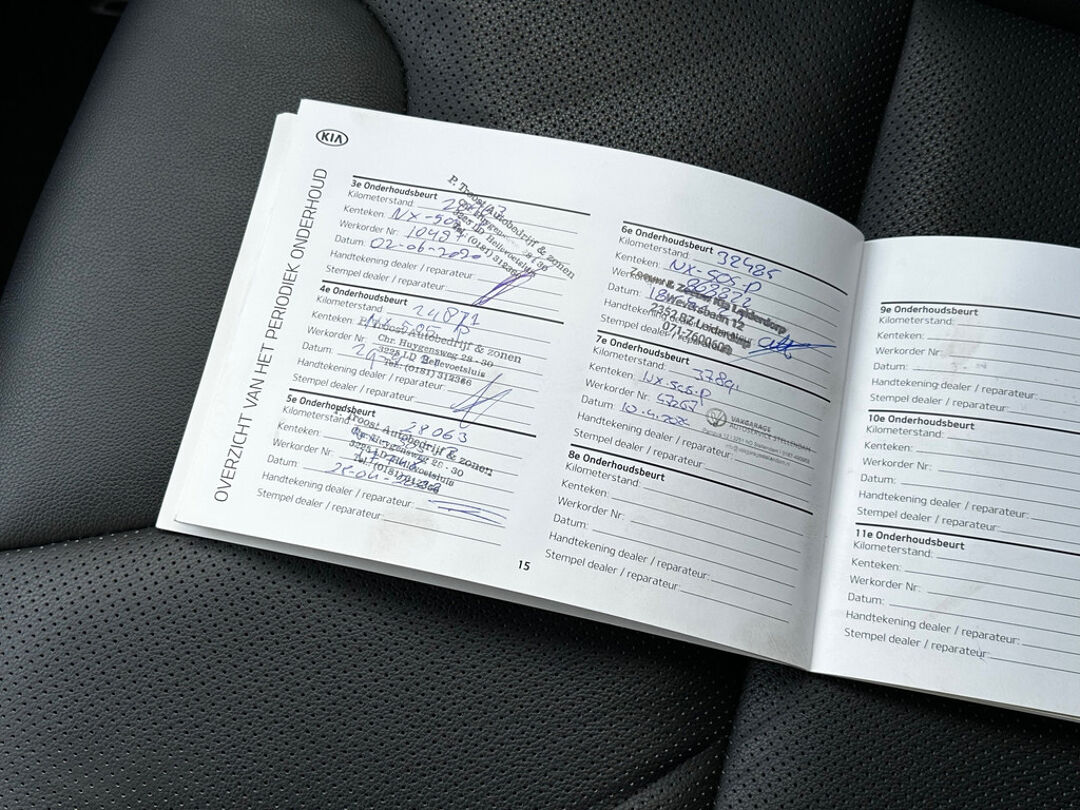 KIA
OVERZICHT VAN HET PERIODIEK ONDERHOUD
3e Onderhoudsbeurt
Kilometerstand:
Kenteken: NX-505
Werkorder Nr:
Datum: 02-06-2020
Handtekening dealer / reparateur:
Stempel dealer / reparateur:
P. Troost Autobedrijf & zonen
3225 LD Hellevoetsluis
Tel: (0181) 312366
4e Onderhoudsbeurt
Kilometerstand: 24871
Kenteken:
Werkorder Nr
Datum:
Handtekening dealer / reparateur:
Stempel dealer / reparateur:
P. Troost Autobedrijf & zonen
Chr. Huygensweg 28 - 30
3225 LD Hellevoetsluis
Tel: (0181) 312366
5e Onderhoudsbeurt
Kilometerstand: 28063
Kenteken:
Werkorder Nr:
Datum:
Handtekening dealer / reparateur:
Stempel dealer / reparateur:
P. Troost Autobedrijf & zonen
Chr. Huygensweg 28 - 30
3225 LD Hellevoetsluis
Tel: (0181) 312366
15
6e Onderhoudsbeurt
Kilometerstand: 32485
Kenteken: NX-505-P
Datum:
Handtekening dealer
Stempel dealer / reparateur:
Zeeuw & Zeeuw Kia Leiderdorp
Weversbaan 12
2352 BZ Leiderdorp
071-7600600
7e Onderhoudsbeurt
Kilometerstand: 37891
Kenteken: NX-505-P
Werkorder Nr: 47267
Datum:
Handtekening dealer / reparateur:
Stempel dealer / reparateur:
VAKGARAGE
AUTOSERVICE STELLENDAM
8e Onderhoudsbeurt
Kilometerstand:
Kenteken:
Werkorder Nr:
Datum:
Handtekening dealer / reparateur:
Stempel dealer / reparateur:
9e Onderhoudsbeurt
Kilometerstand:
Kenteken:
Werkorder Nr:
Datum:
Handtekening dealer / reparateur:
Stempel dealer / reparateur:
10e Onderhoudsbeurt
Kilometerstand:
Kenteken:
Werkorder Nr:
Datum:
Handtekening dealer / reparateur:
Stempel dealer / reparateur:
11e Onderhoudsbeurt
Kilometerstand:
Kenteken:
Werkorder Nr:
Datum:
Handtekening dealer / reparateur:
Stempel dealer / reparateur: